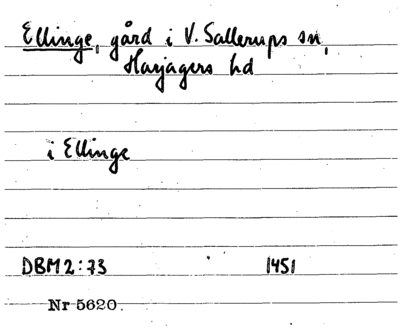 Ellinge, gård i V. Sallerups sn,
Harjagers hd
i Ellinge
DBM 2:73 1451
Nr 5620